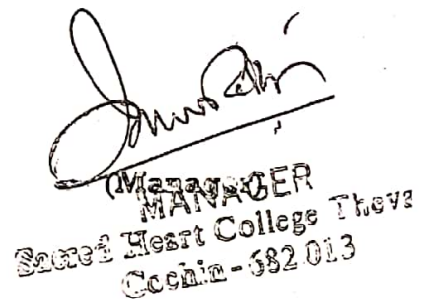 (Manager)
MANAGER
Sacred Heart College Theva
Cochin - 682 013